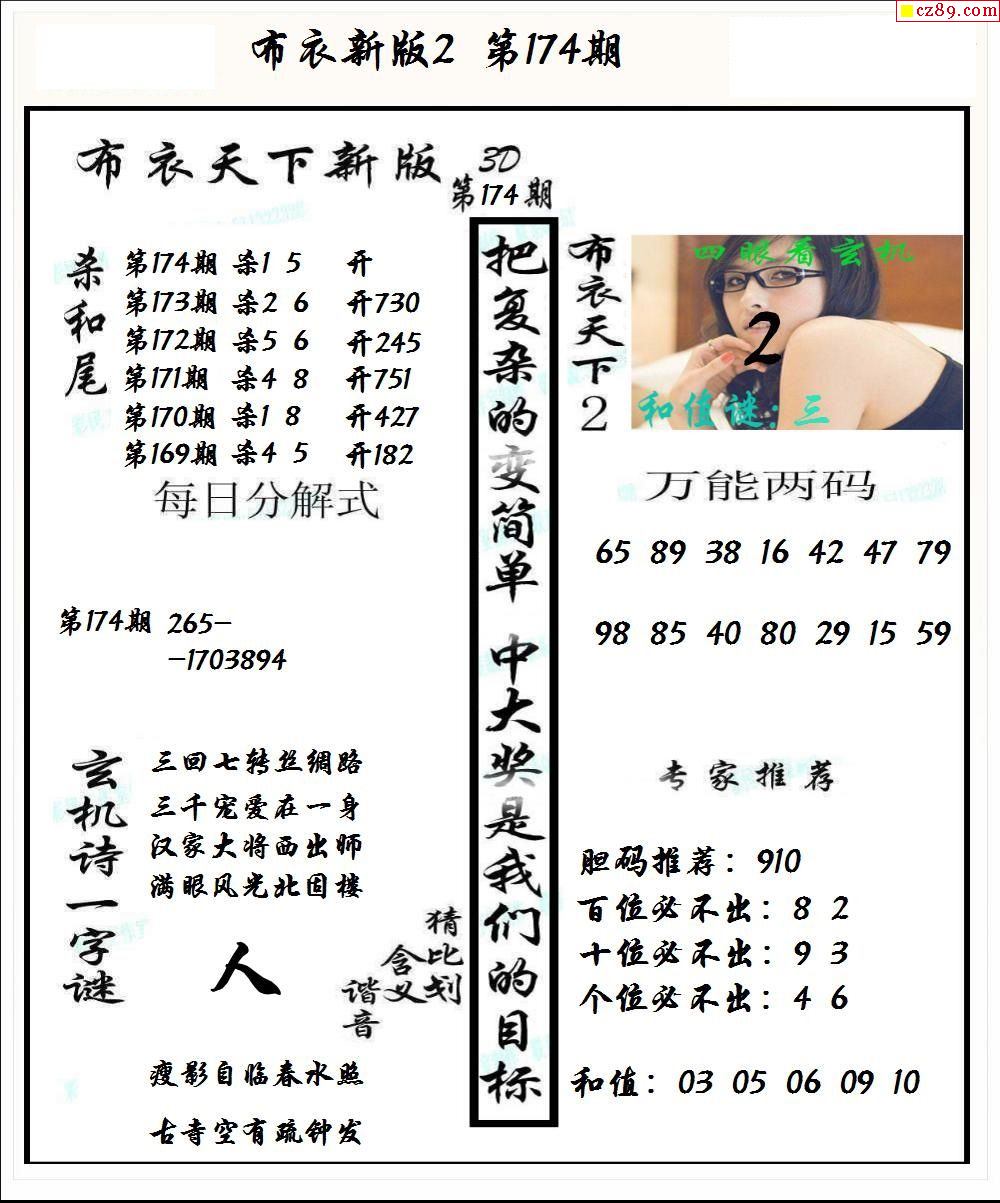 cz89.com
布衣新版2 第174期
布衣天下新版
3D
第174期
杀和尾
第174期 杀1 5 开
第173期 杀2 6 开730
第172期 杀5 6 开245
第171期 杀4 8 开751
第170期 杀1 8 开427
第169期 杀4 5 开182
每日分解式
第174期 265-
-1703894
玄机诗一字谜
三回七转丝绸路
三千宠爱在一身
汉家大将西出师
满眼风光北固楼
人
猜比划
含义
谐音
瘦影自临春水照
古寺空有疏钟发
把复杂的变简单 中大奖是我们的目标
布衣天下2
四眼看玄机
2
和值谜:三
万能两码
65 89 38 16 42 47 79
98 85 40 80 29 15 59
专家推荐
胆码推荐：910
百位必不出：8 2
十位必不出：9 3
个位必不出：4 6
和值：03 05 06 09 10